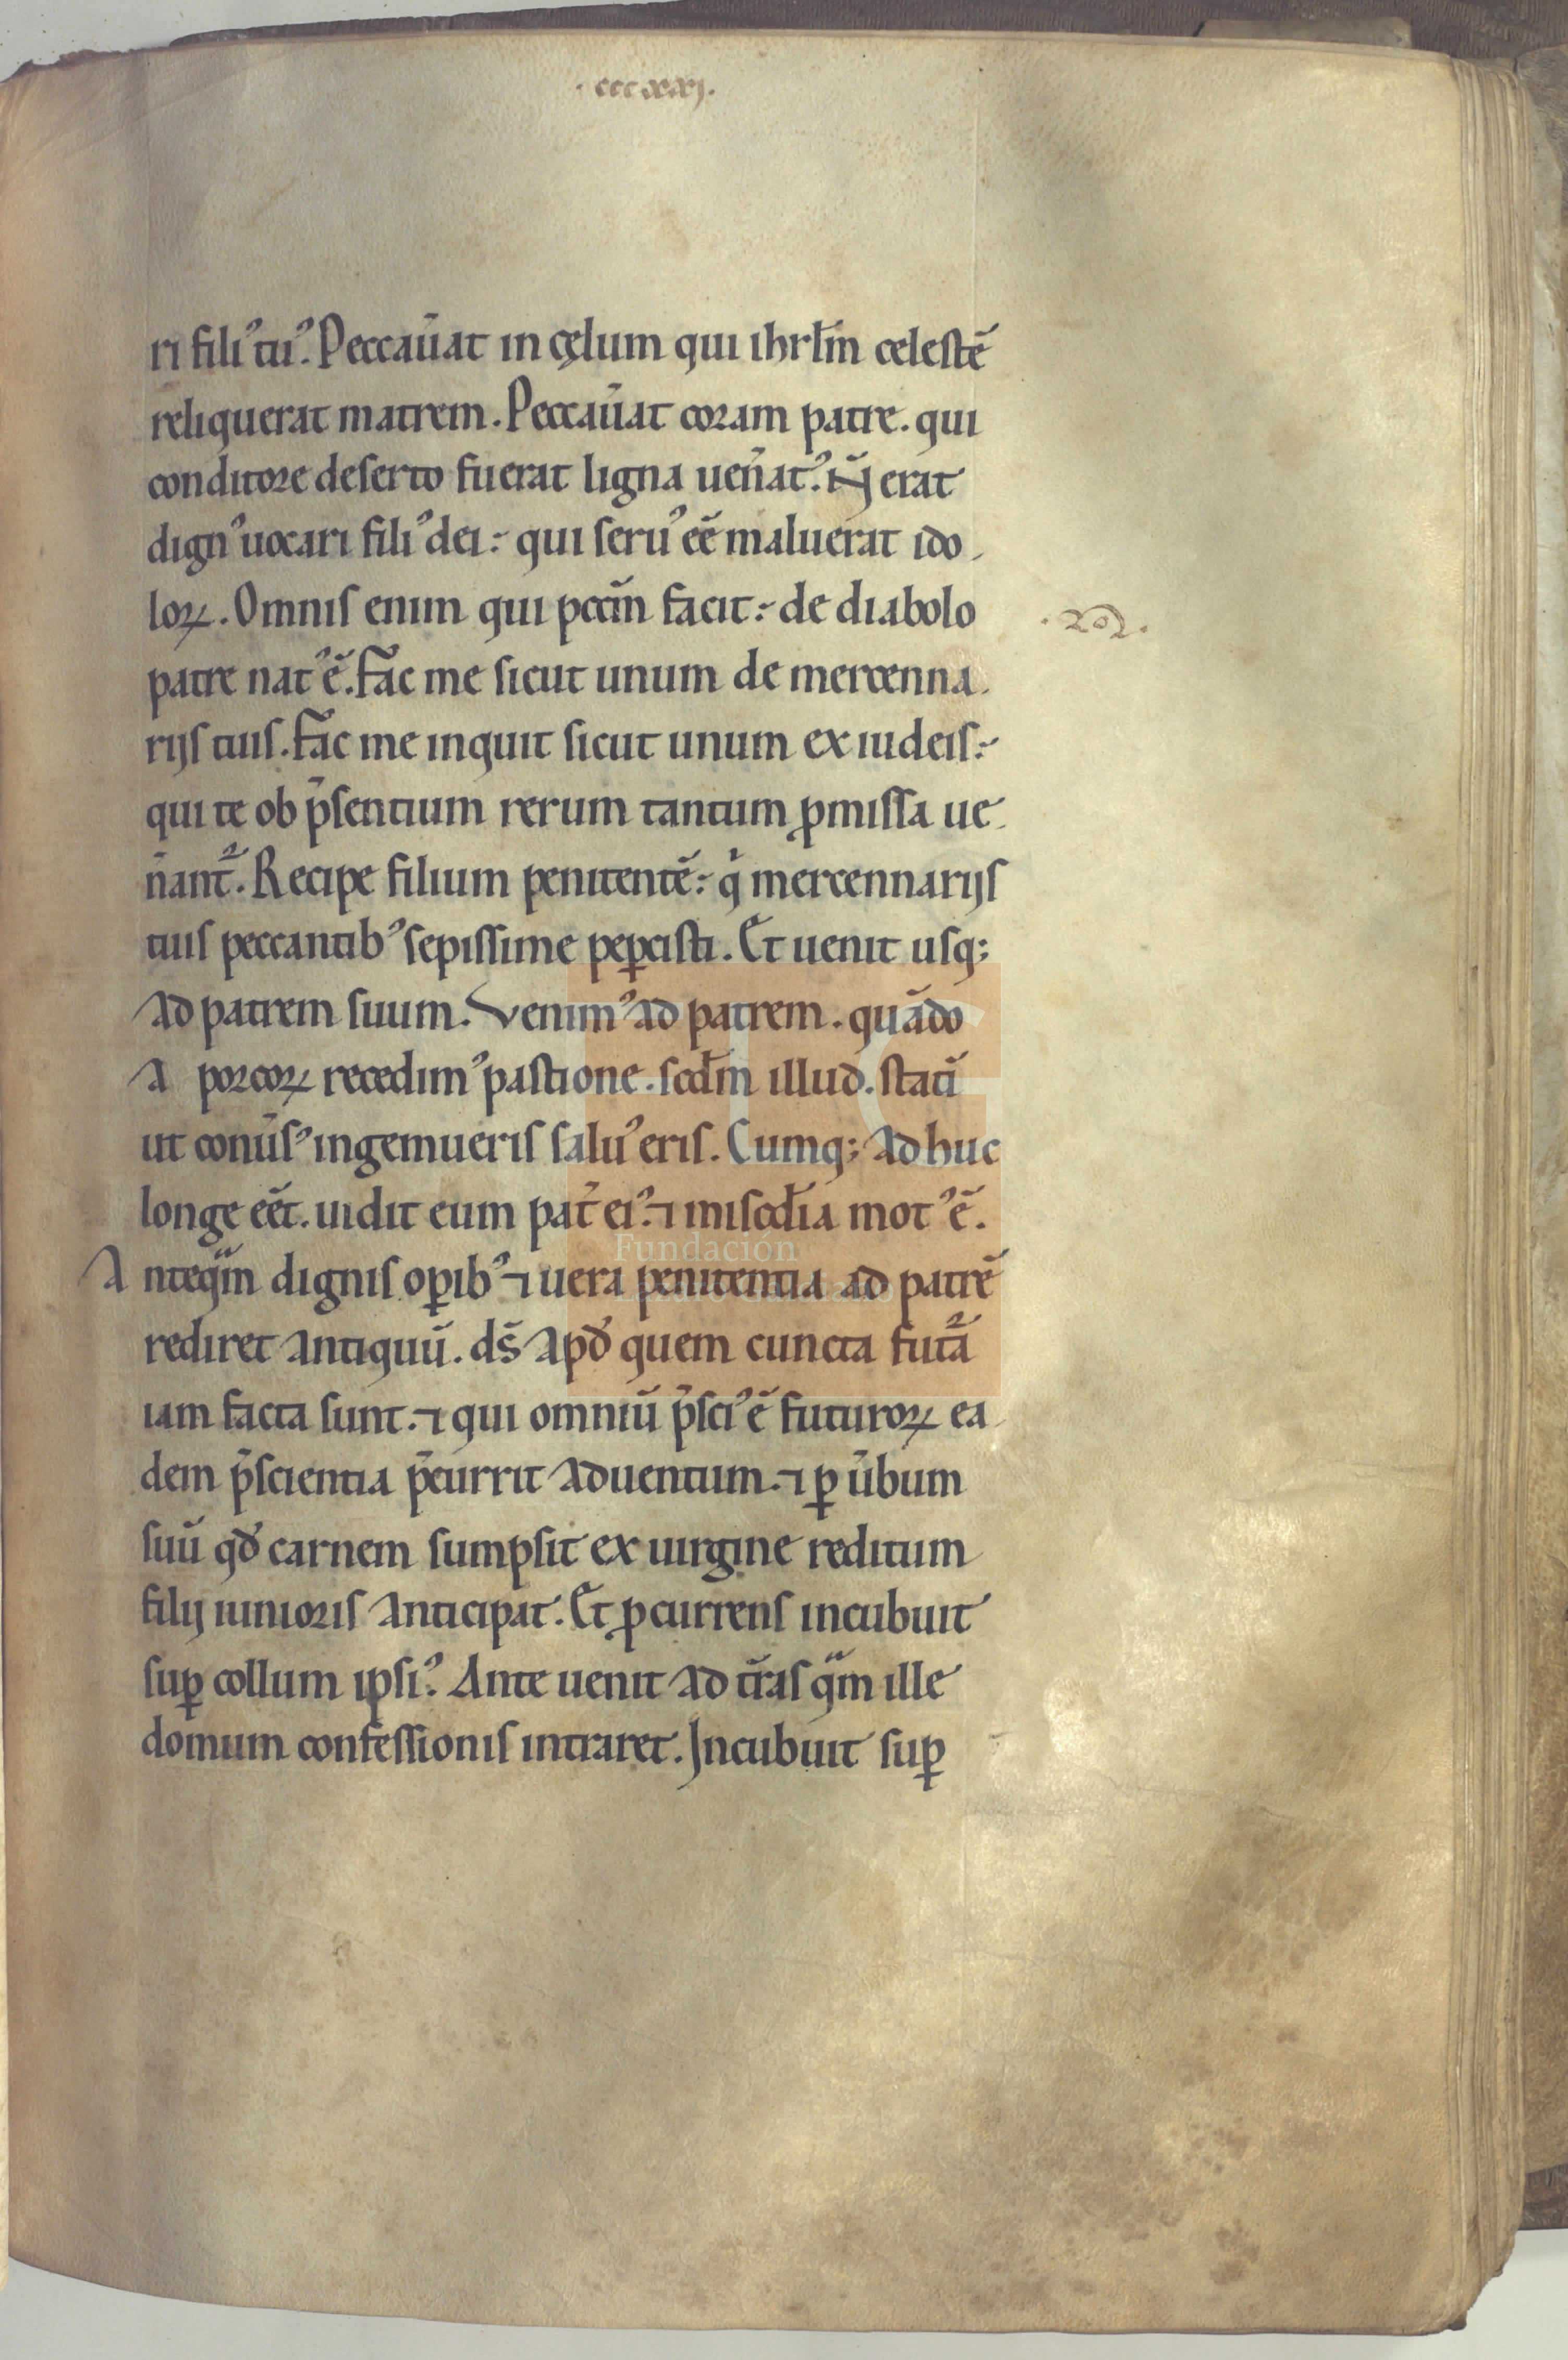 · cccxxxj.
ri filiꝰ tuꝰ. Peccau̅at in cęlum qui ihrl̅m celestē
reliquerat matrem. Peccau̅at coram patre. qui
conditore deserto fuerat ligna uen̅atꝰ. N̄ erat
dignꝰ uocari filiꝰ dei: qui seruꝰ eē maluerat ido
loꝝ. Omnis enim qui pccm̅ facit: de diabolo
patre natꝰ ē. Fac me sicut unum de mercenna
rijs tuis. Fac me inquit sicut unum ex iudeis:
qui te ob p̄sentium rerum tantum ꝓmissa ue
n̅ant᷑. Recipe filium penitentē: qͥ mercennarijs
tuis peccantibꝰ sepissime peꝑcisti. Et uenit usq;
ad patrem suum. Venimꝰ ad patrem. quādo
a porcoꝝ recedimꝰ pastione. scdm̅ illud. statī
ut conu̅sꝰ ingemueris saluꝰ eris. Cumq; adhuc
longe eēt. uidit eum pat̅ eiꝰ. ⁊ misc̅dia motꝰ ē.
Anteqᵃm dignis oꝑibꝰ ⁊ uera penitentia ad patrē
rediret antiquū. ds̄ apđ quem cuncta fut᷑a
iam facta sunt. ⁊ qui omniū p̄sciꝰ ē futuroꝝ ea
dem p̄scientia p̄currit aduentum. ⁊ ꝑ u̅bum
suū qđ carnem sumpsit ex uirgine reditum
filij iunioris anticipat. Et ꝓcurrens incubuit
suꝑ collum ipsiꝰ. Ante uenit ad t̅ras qᵃm ille
domum confessionis intraret. Incubuit suꝑ
Fundación